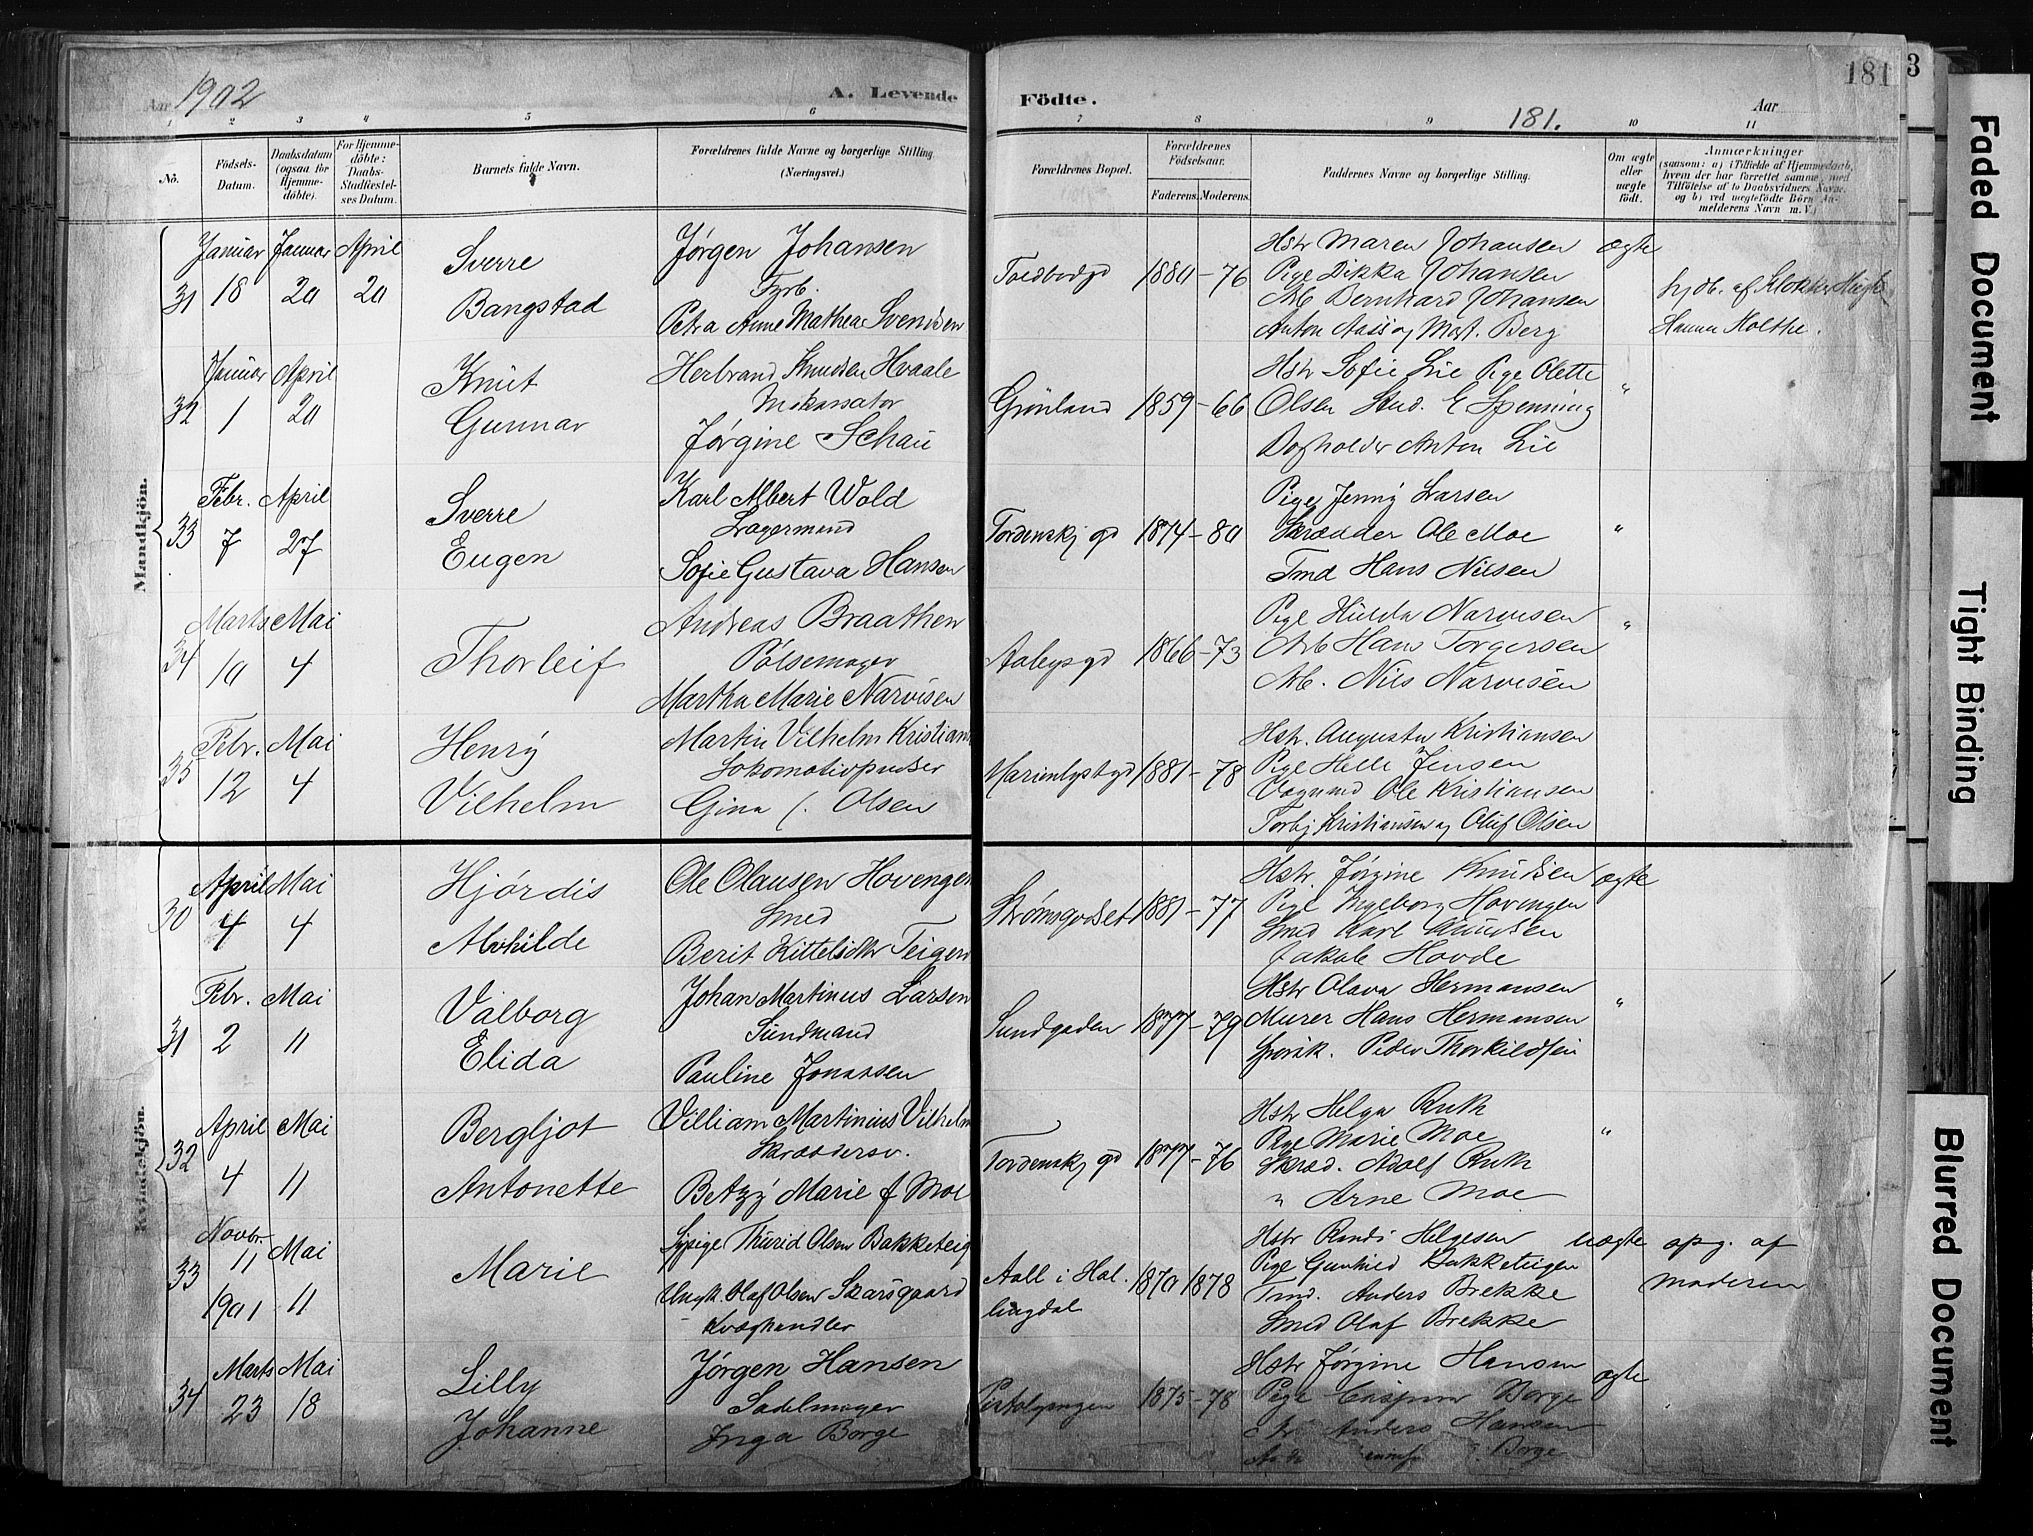 Aar 1902
A. Levende
Födte.
181.
Aar
181
3
1 2 3 4 5 6 7 8 9 10 11
Nô.
Födsels-
Datum.
Daabsdatum
(ogsaa for
Hjemme-
döbte).
For Hjemme-
döbte:
Daabs-
Stadfæstel-
ses Datum.
Barnets fulde Navn.
Forældrenes fulde Navne og borgerlige Stilling
(Næringsvei.)
Forældrenes Bopæl.
Forældrenes
Födselsaar.
Faderens. Moderens.
Faddernes Navne og borgerlige Stilling.
Om ægte
eller
uægte
födt.
Anmærkninger
(saasom: a) i Tilfælde af Hjemmedaab,
hvem der har forrettet samme, med
Tilföielse af to Daabsvidners Navne,
og b) ved uægtefödte Börn An-
melderens Navn m. V.)
Mandkjön.
31
Januar
18
Januar
20
April
20
Sverre
Bangstad
Jørgen Johansen
Fyrb.
Petra Anne Mathea Svendsen
Toldbodgd
1880 - 76
Hstr Maren Johansen
Pige Dikka Johansen
Arb Bernhard Johansen
Anton Aass og Mat. Berg
ægte
hjdb. af Klokker
Hanna Holthe.
32
Januar
1
April
20
Knut
Gunnar
Herbrand Knudsen Hvaale
Jørgine Schau
Grønland
1859 - 66
Hstr Sofie Lie Pige Olette
Olsen Stud. E Spenning
Bogholder Anton Lie
"
33
Febr.
7
April
27
Sverre
Eugen
Karl Albert Wold
Lagermand
Sofie Gustava Hansen
Tordenskj gd
1874 - 80
Pige Jenny Larsen
Skrædder Ole Moe
Tmd Hans Nilsen
"
34
Marts
10
Mai
4
Thorleif
Andreas Braathen
Pølsemager
Martha Marie Narvesen
Aabygd
1866 - 73
Pige Hulda Narvesen
Arb Hans Torgersen
Arb. Nils Narvesen
"
35
Febr.
12
Mai
4
Henry
Vilhelm
Martin Vilhelm Kristians
Lokomotivpudser
Gina f. Olsen
Marienlystgd
1881 - 78
Hstr. Augusta Kristiansen
Pige Helle Jensen
Vognmd Ole Kristiansen
Torbj Kristiansen og Oluf Olsen
Kvindekjön.
30
April
4
Mai
4
Hjørdis
Alvhilde
Ole Olausen Hovengen
Smed
Berit Kittelsdtr Teigen
Strømsgodset
1881 - 77
Hstr. Jørgine Knudsen
Pige Ingeborg Hovengen
Smed Karl Knudsen
Jakob Hovde
ægte
31
Febr.
2
Mai
11
Valborg
Elida
Johan Martinus Larsen
Sundmand
Pauline Jonassen
Sundgaden
1877 - 79
Hstr Olava Hermansen
Murer Hans Hermansen
Peder Thorkildsen
"
32
April
4
Mai
11
Bergljot
Antonette
Villiam Martinius Vilhelm
Skræddersv.
Betzy Marie f Moe
Tordenskj gd
1877 - 76
Hstr Helga Ruth
Pige Marie Moe
Skræd. Adolf Ruth
" Arne Moe
"
33
Novbr.
11
1901
Mai
11
Marie
Sypige Thurid Olsen Bakketeig
Ungk Olaf Olsen Skarsgaard
Kvæghandler
Aall i Hal-
lingdal
1870 1878
Hstr Randi Helgesen
Pige Gunhild Bakketeigen
Tmd. Anders Brekke
Smed Olaf Brekke
uægte
opg. af
moderen
34
Marts
23
Mai
18
Lilly
Johanne
Jørgen Hansen
Sadelmager
Inga Borge
Pistolgangen
1875 - 78
Hstr Jørgine Hansen
Pige Borge
Anders Hansen
Borge
ægte
Faded Document
Tight Binding
Blurred Document